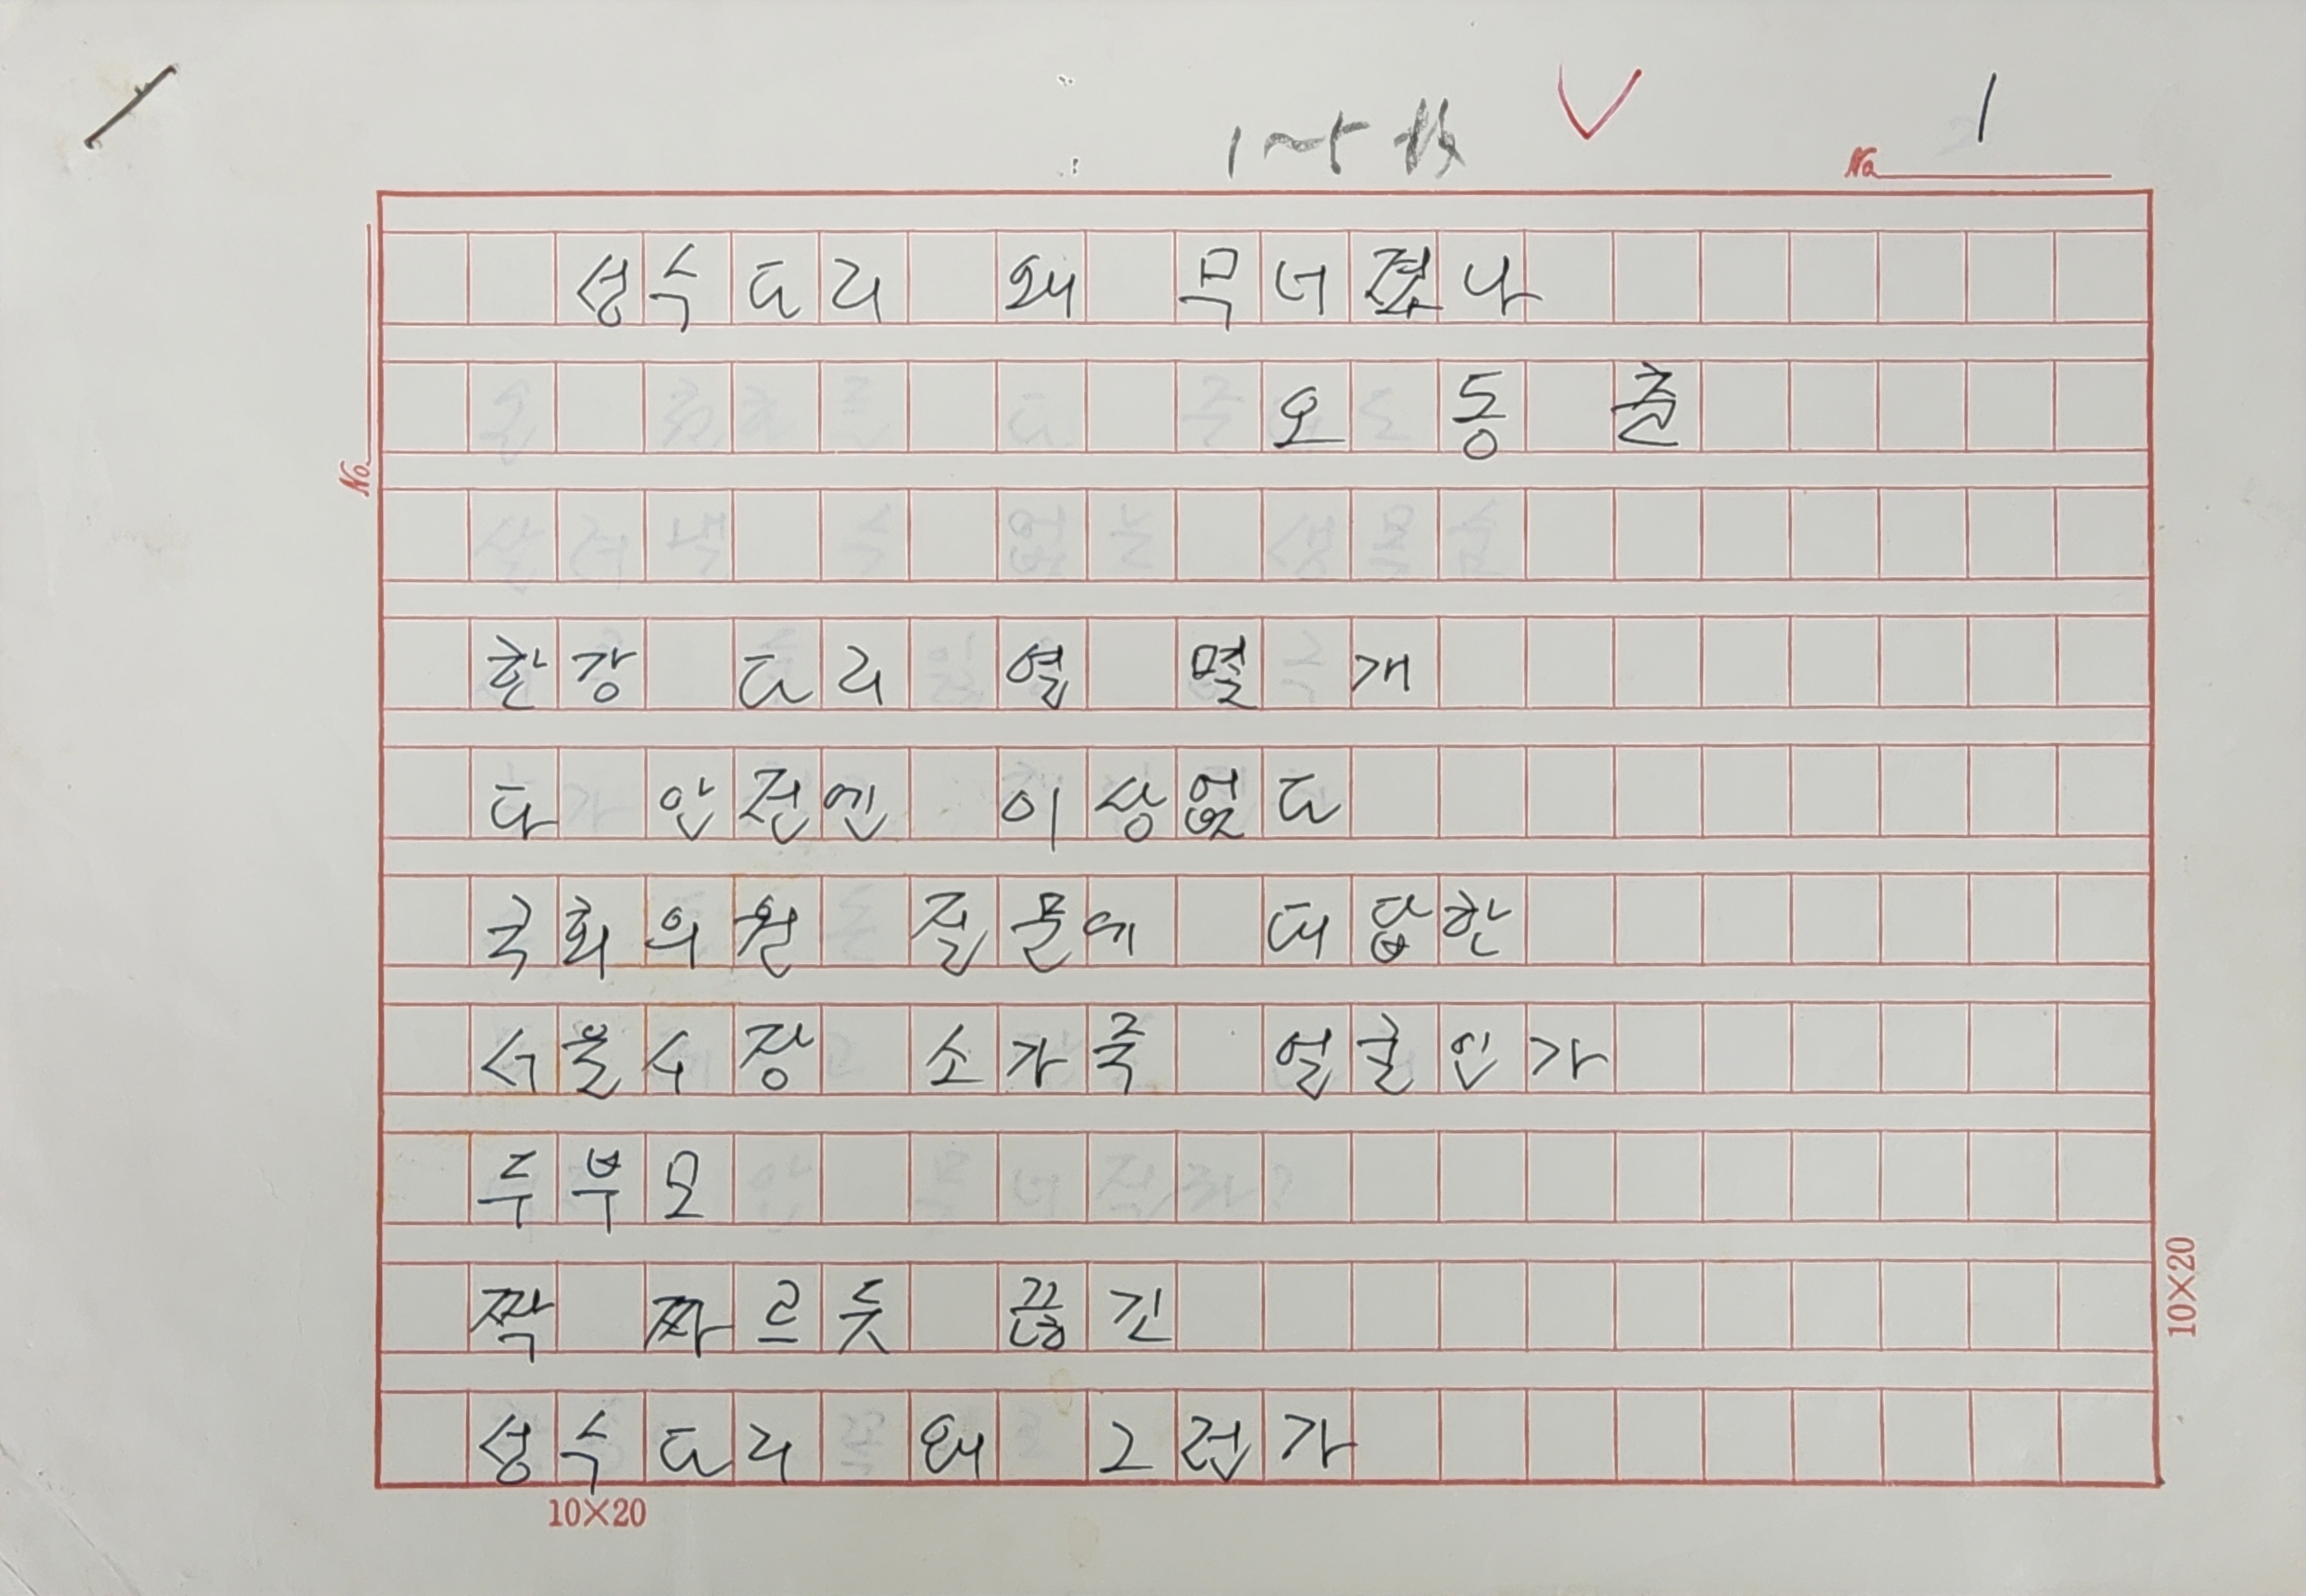 1~5 枚 V 1
No.
No.
성수다리 왜 무너졌나
오 동 춘
한강 다리 열 몇 개
다 안전엔 이상없다
국회의원 질문에 대답한
서울시장 소가죽 얼굴인가
두부모
짝 짜르듯 끊긴
성수다리 왜 그런가
10×20
10×20